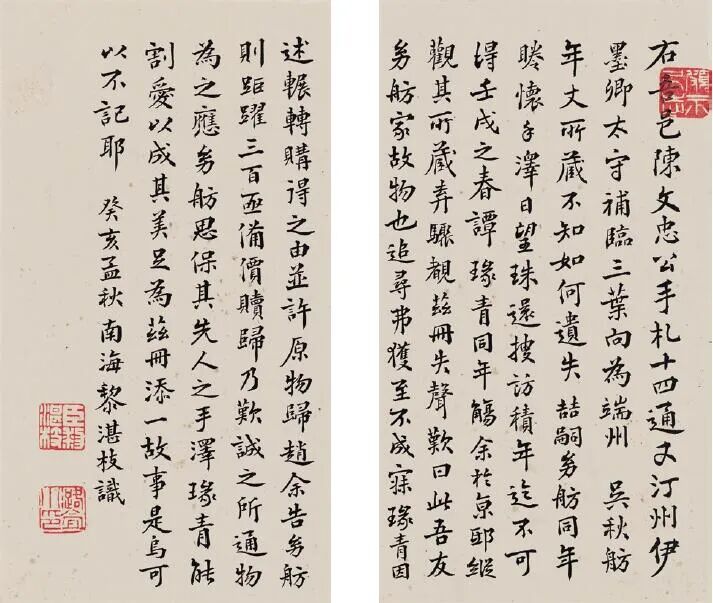 右吾邑陳文忠公手札十四通又汀州伊
墨卿太守補臨三葉向為端州 吳秋舫
年丈所藏不知如何遺失喆嗣勞舫同年
睠懷手澤日望珠還搜訪積年迄不可
得壬戌之春譚瑑青同年觴余於京邸縱
觀其所藏弆驟覩茲冊失聲歎曰此吾友
勞舫家故物也追尋弗獲至不成寐瑑青因
述輾轉購得之由並許原物歸趙余告勞舫
則距躍三百亟備價贖歸乃歎誠之所通物
為之應勞舫思保其先人之手澤瑑青能
割愛以成其美足為茲冊添一故事是烏可
以不記耶 癸亥孟秋南海黎湛枝識
臣黎湛枝